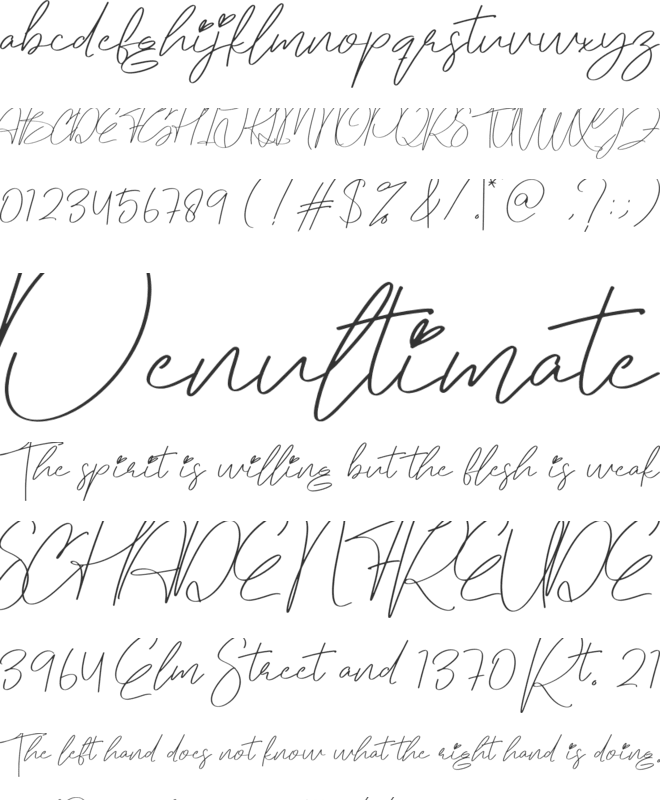 abcdefghijklmnopqrstuvwxyz
ABCDEFGHIJKLMNOPQRSTUVWXYZ
0123456789 ( ! # $ % & / . | * @ ; ? : ; )
Penultimate
The spirit is willing but the flesh is weak
SCHADENFREUDE
3964 Elm Street and 1370 Rt. 21
The left hand does not know what the right hand is doing.